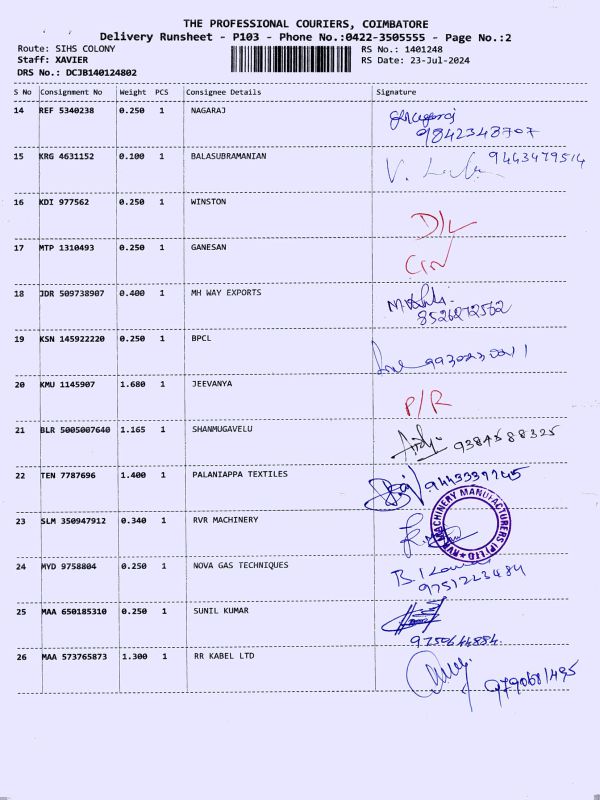 THE PROFESSIONAL COURIERS, COIMBATORE
Delivery Runsheet - P103 - Phone No.:0422-3505555 - Page No.:2
Route: SIHS COLONY RS No.: 1401248
Staff: XAVIER RS Date: 23-Jul-2024
DRS No.: DCJB140124802
S No Consignment No Weight PCS Consignee Details Signature
14 REF 5340238 0.250 1 NAGARAJ
9842348707
15 KRG 4631152 0.100 1 BALASUBRAMANIAN 9443479514
16 KDI 977562 0.250 1 WINSTON
D/L
17 MTP 1310493 0.250 1 GANESAN
18 JDR 509738907 0.400 1 MH WAY EXPORTS
8526272562
19 KSN 145922220 0.250 1 BPCL
20 KMU 1145907 1.680 1 JEEVANYA
P/R
21 BLR 5005007640 1.165 1 SHANMUGAVELU
9384588325
22 TEN 7787696 1.400 1 PALANIAPPA TEXTILES
23 SLM 350947912 0.340 1 RVR MACHINERY
RVR MACHINERY MANUFACTURERS (P) LTD
24 MYD 9758804 0.250 1 NOVA GAS TECHNIQUES
9751223484
25 MAA 650185310 0.250 1 SUNIL KUMAR
9750644884
26 MAA 573765873 1.300 1 RR KABEL LTD